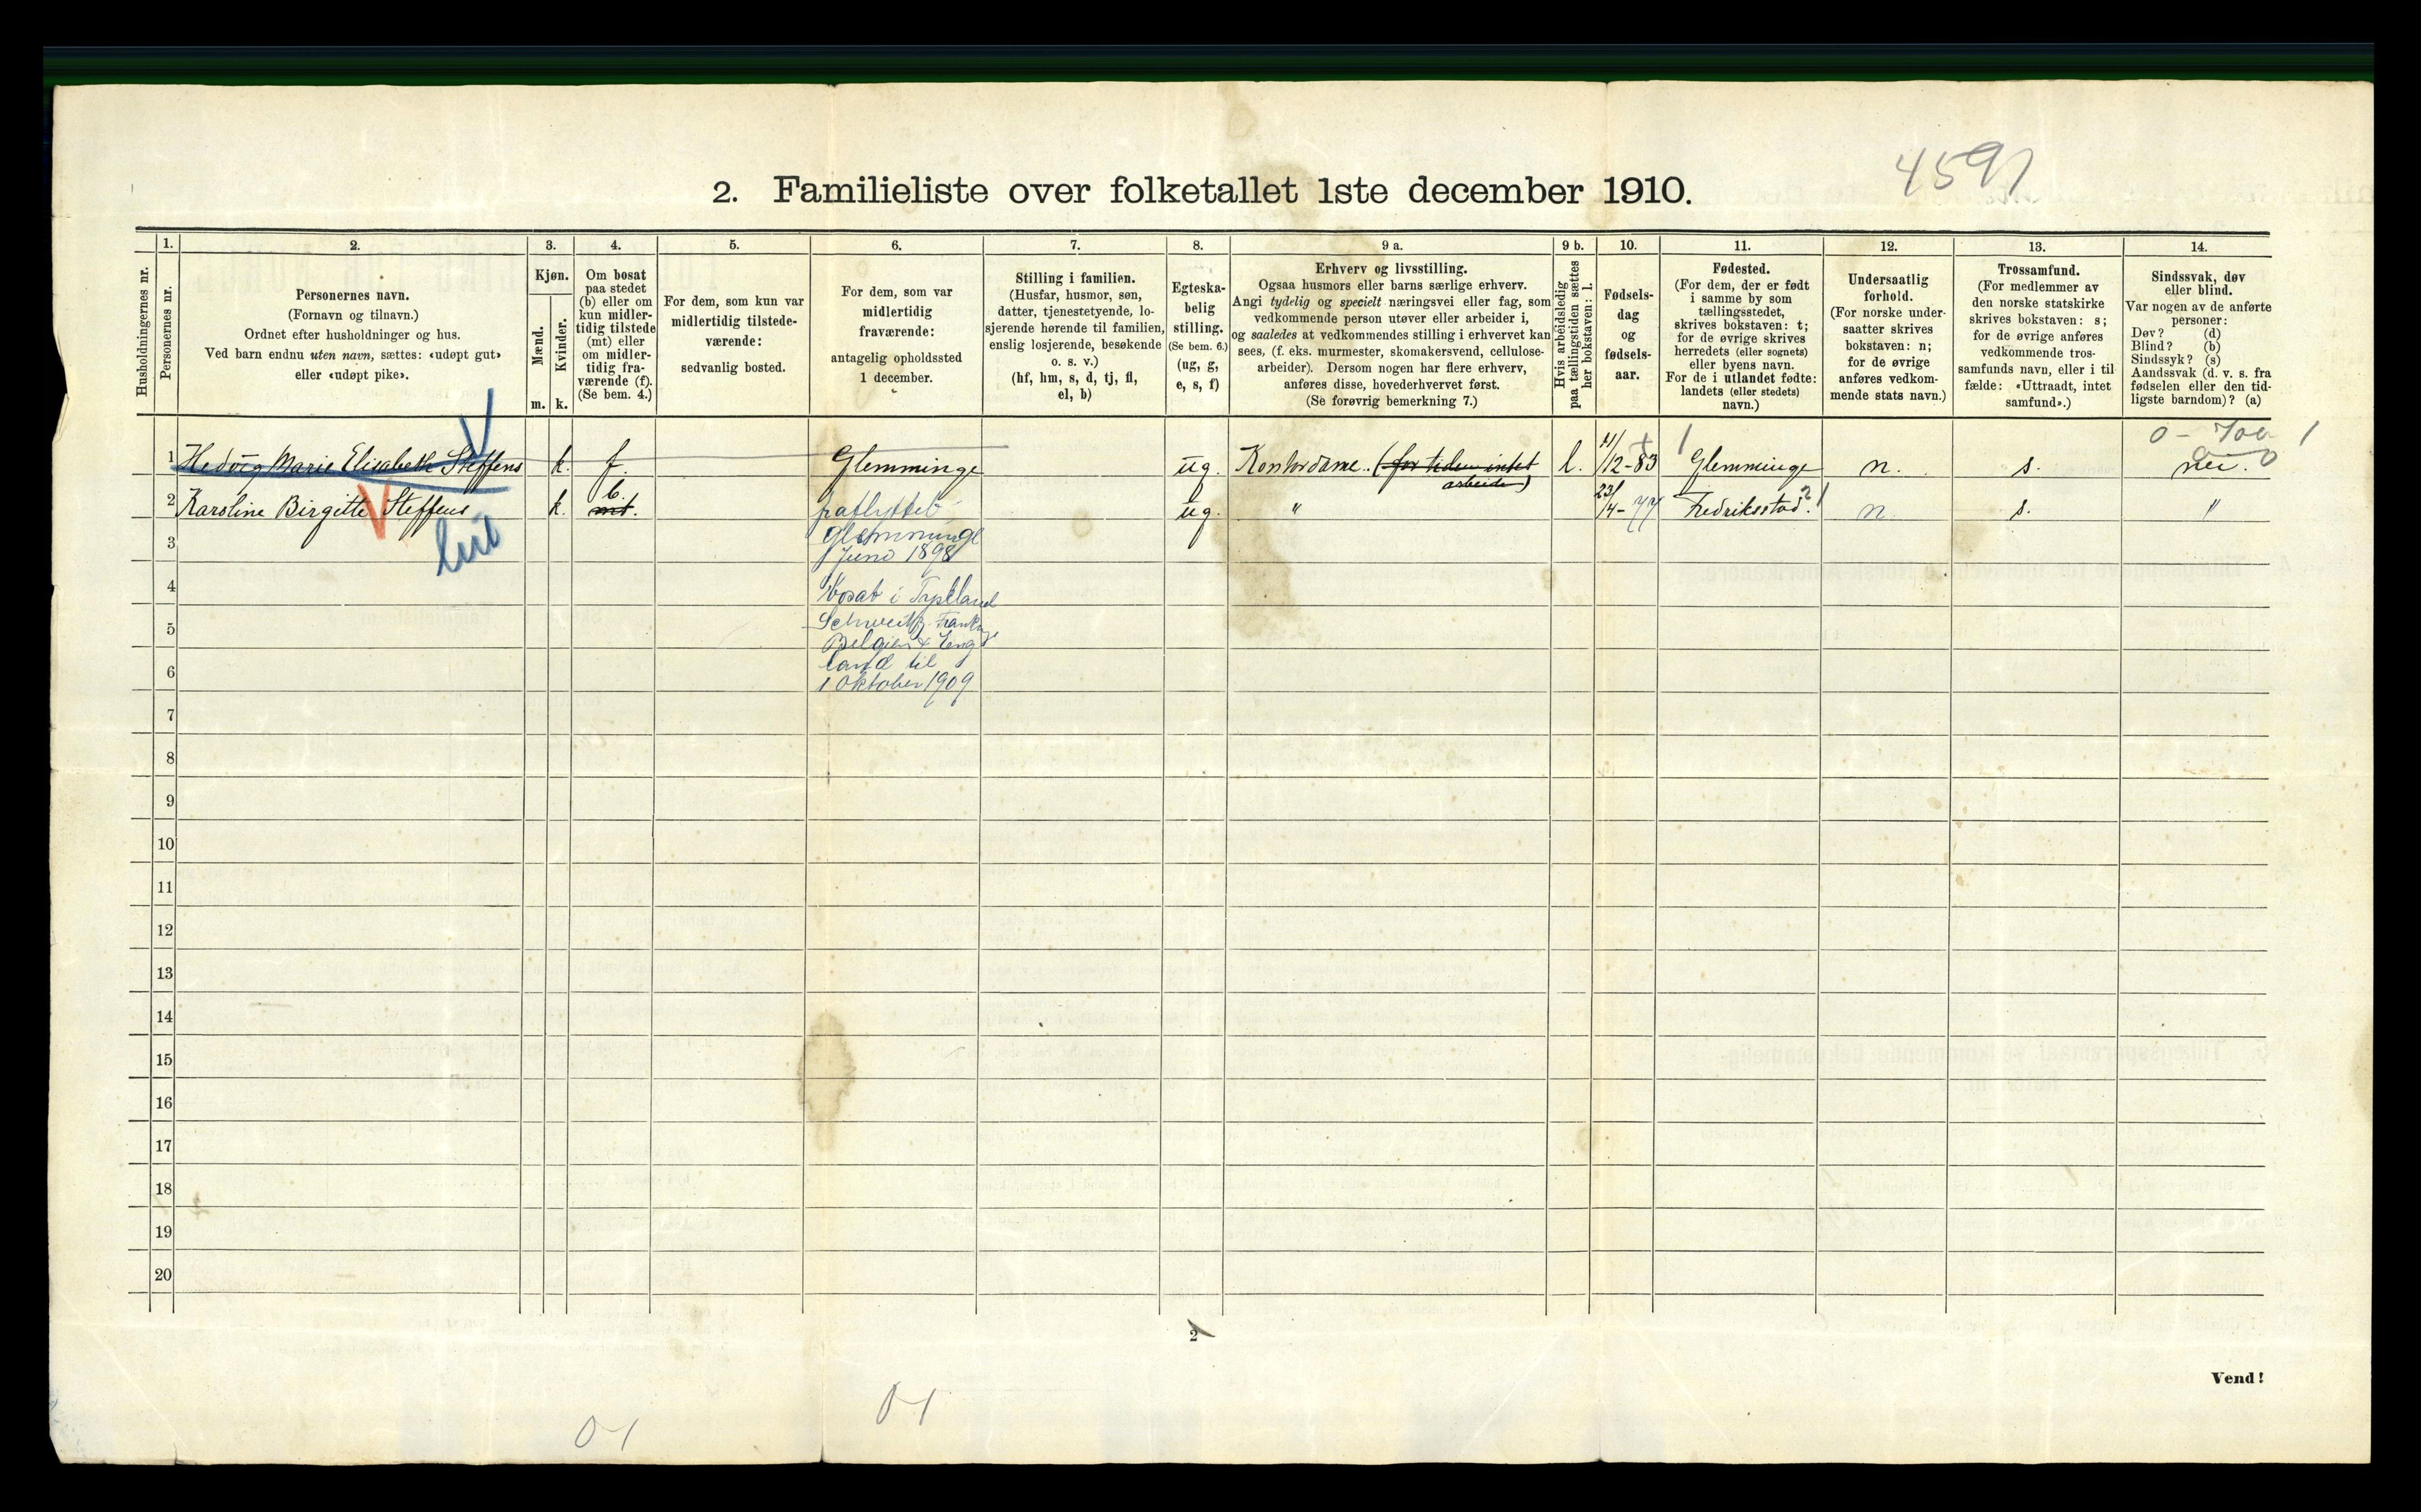 4591
2. Familieliste over folketallet 1ste december 1910.
Husholdningernes nr.
1.
Personernes nr.
2.
Personernes navn.
(Fornavn og tilnavn.)
Ordnet efter husholdninger og hus.
Ved barn endnu uten navn, sættes: «udøpt gut»
eller «udøpt pike».
3.
Kjøn.
Mænd.
Kvinder.
m. k.
4.
Om bosat
paa stedet
(b) eller om
kun midler-
tidig tilstede
(mt) eller
om midler-
tidig fra-
værende (f).
(Se bem. 4.)
5.
For dem, som kun var
midlertidig tilstede-
værende:
sedvanlig bosted.
6.
For dem, som var
midlertidig
fraværende:
antagelig opholdssted
1 december.
7.
Stilling i familien.
(Husfar, husmor, søn,
datter, tjenestetyende, lo-
sjerende hørende til familien,
enslig losjerende, besøkende
o. s. v.)
(hf, hm, s, d, tj, fl,
el, b)
8.
Egteska-
belig
stilling.
(Se bem. 6.)
(ug, g,
e, s, f)
9 a.
Erhverv og livsstilling.
Ogsaa husmors eller barns særlige erhverv.
Angi tydelig og specielt næringsvei eller fag, som
vedkommende person utøver eller arbeider i,
og saaledes at vedkommendes stilling i erhvervet kan
sees, (f. eks. murmester, skomakersvend, cellulose-
arbeider). Dersom nogen har flere erhverv,
anføres disse, hovederhvervet først.
(Se forøvrig bemerkning 7.)
9 b.
Hvis arbeidsledig
paa tællingstiden sættes
her bokstaven: l.
10.
Fødsels-
dag
og
fødsels-
aar.
11.
Fødested.
(For dem, der er født
i samme by som
tællingsstedet,
skrives bokstaven: t;
for de øvrige skrives
herredets (eller sognets)
eller byens navn.
For de i utlandet fødte:
landets (eller stedets)
navn.)
12.
Undersaatlig
forhold.
(For norske under-
saatter skrives
bokstaven: n;
for de øvrige
anføres vedkom-
mende stats navn.)
13.
Trossamfund.
(For medlemmer av
den norske statskirke
skrives bokstaven: s;
for de øvrige anføres
vedkommende tros-
samfunds navn, eller i til-
fælde: «Uttraadt, intet
samfund».)
14.
Sindssvak, døv
eller blind.
Var nogen av de anførte
personer:
Døv? (d)
Blind? (b)
Sindssyk? (s)
Aandssvak (d. v. s. fra
fødselen eller den tid-
ligste barndom)? (a)
1 Hedvig Marie Elisabeth Steffens k. f. Glemminge ug. Kontordame. (for tiden intet arbeide) l. 11/12-83 Glemminge n. s. nei.
2 Karoline Birgitte Steffens k. mt. b. ug. " 23/4-77 Fredriksstad. n s. "
fraflyttet
Glemminge
Juno 1898
Bosat i Tyskland
Schweitz Frankrige
Belgien & Eng
land til
1 Oktober 1909
3
4
5
6
7
8
9
10
11
12
13
14
15
16
17
18
19
20
2
Vend!
01
01